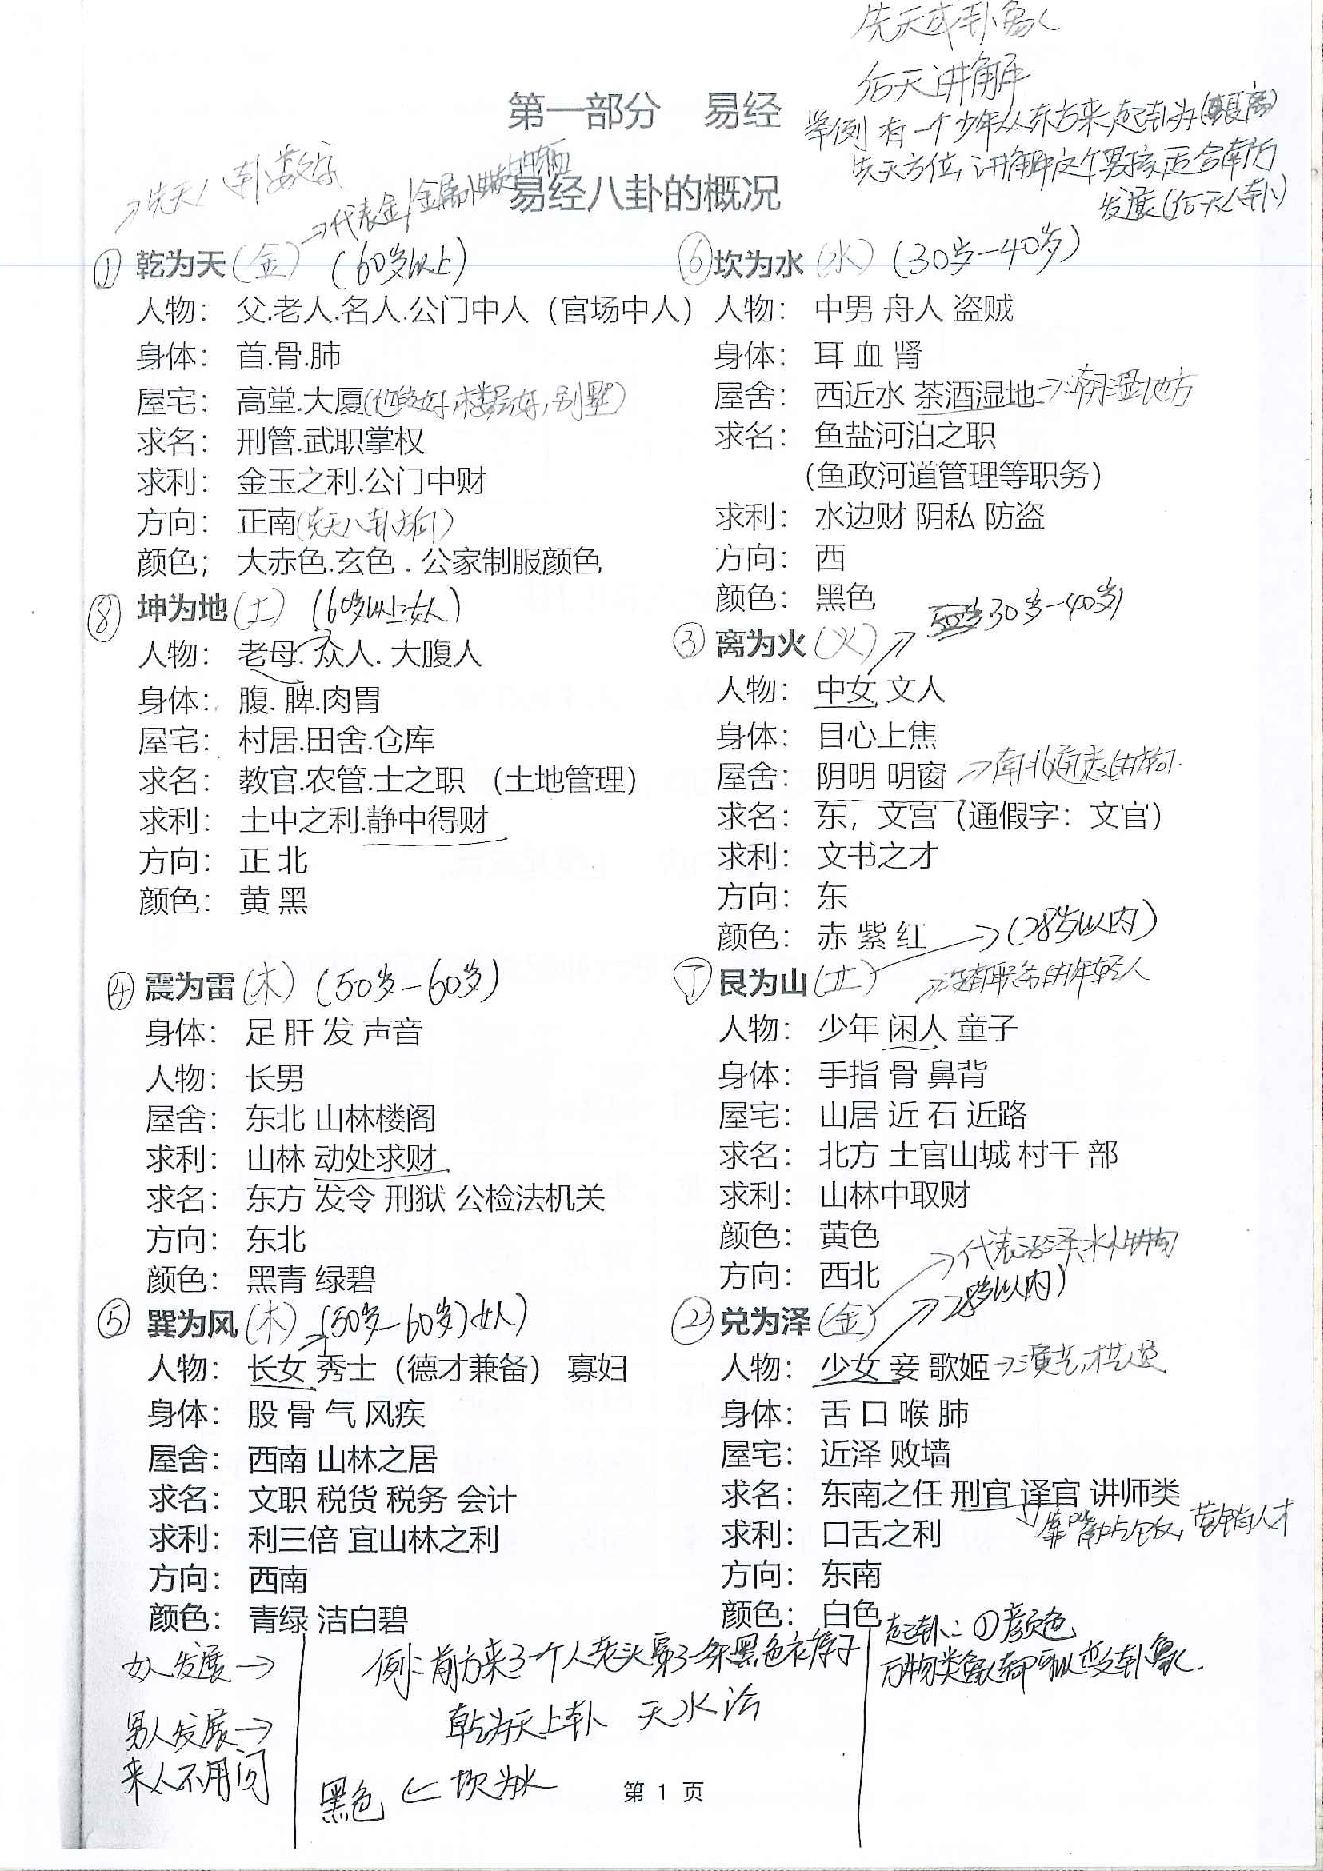 后天讲解
第一部分 易经
举例 有一个少年从东方来起卦为
先天方位,讲解这个男孩适合南方
发展(后天八卦)
易经八卦的概况
→先天八卦数字
→代表金,金属
① 乾为天(金) (60岁以上)
人物: 父.老人.名人.公门中人(官场中人)
身体: 首.骨.肺
屋宅: 高堂.大厦(地段好,楼层好,别墅)
求名: 刑管.武职掌权
求利: 金玉之利.公门中财
方向: 正南(先天八卦方向)
颜色; 大赤色.玄色.公家制服颜色
⑧ 坤为地(土) (60岁以上女人)
人物: 老母.众人.大腹人
身体: 腹.脾.肉胃
屋宅: 村居.田舍.仓库
求名: 教官.农管.士之职 (土地管理)
求利: 土中之利.静中得财
方向: 正 北
颜色: 黄 黑
④ 震为雷(木) (50岁-60岁)
身体: 足 肝 发 声音
人物: 长男
屋舍: 东北 山林楼阁
求利: 山林 动处求财
求名: 东方 发令 刑狱 公检法机关
方向: 东北
颜色: 黑青 绿碧
⑤ 巽为风(木) (50岁-60岁)女人)
人物: 长女 秀士(德才兼备) 寡妇
身体: 股 骨 气 风疾
屋舍: 西南 山林之居
求名: 文职 税货 税务 会计
求利: 利三倍 宜山林之利
方向: 西南
颜色: 青绿 洁白碧
⑥ 坎为水(水) (30岁-40岁)
人物: 中男 舟人 盗贼
身体: 耳 血 肾
屋舍: 西近水 茶酒湿地→潮湿地方
求名: 鱼盐河泊之职
(鱼政河道管理等职务)
求利: 水边财 阴私 防盗
方向: 西
颜色: 黑色
30岁-40岁)
③ 离为火(火)
人物: 中女 文人
身体: 目心上焦
屋舍: 阴明 明窗 →南北通透的房间.
求名: 东, 文宫(通假字:文官)
求利: 文书之才
方向: 东
颜色: 赤 紫 红 →(28岁以内)
⑦ 艮为山(土) →没有职务的年轻人
人物: 少年 闲人 童子
身体: 手指 骨 鼻背
屋宅: 山居 近 石 近路
求名: 北方 土官山城 村干 部
求利: 山林中取财
颜色: 黄色
方向: 西北
→代表沼泽,水
28岁以内)
② 兑为泽(金)
人物: 少女 妾 歌姬→演艺,才艺人员
身体: 舌 口 喉 肺
屋宅: 近泽 败墙
求名: 东南之任 刑官 译官 讲师类
靠嘴巴吃饭,营销人才
求利: 口舌之利
方向: 东南
颜色: 白色
女人发展→
男人发展→
来人不用问
例:前方来了一个人老头穿了一条黑色衣裤子
乾为天上卦 天水讼
黑色 ← 坎为水
起卦:①颜色
万物类象都可以变卦象.
第 1 页